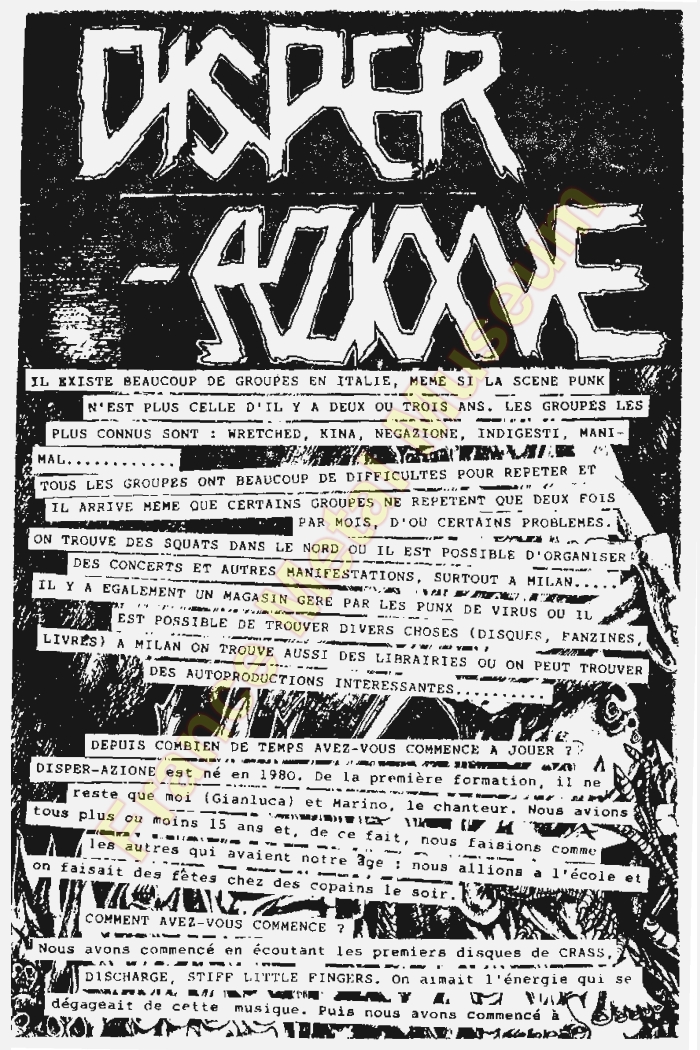 DISPER
-AZIONE
IL EXISTE BEAUCOUP DE GROUPES EN ITALIE, MEME SI LA SCENE PUNK
N'EST PLUS CELLE D'IL Y A DEUX OU TROIS ANS. LES GROUPES LES
PLUS CONNUS SONT : WRETCHED, KINA, NEGAZIONE, INDIGESTI, MANI-
MAL............
TOUS LES GROUPES ONT BEAUCOUP DE DIFFICULTES POUR REPETER ET
IL ARRIVE MEME QUE CERTAINS GROUPES NE REPETENT QUE DEUX FOIS
PAR MOIS, D'OU CERTAINS PROBLEMES.
ON TROUVE DES SQUATS DANS LE NORD OU IL EST POSSIBLE D'ORGANISER
DES CONCERTS ET AUTRES MANIFESTATIONS, SURTOUT A MILAN.....
IL Y A EGALEMENT UN MAGASIN GERE PAR LES PUNX DE VIRUS OU IL
EST POSSIBLE DE TROUVER DIVERS CHOSES (DISQUES, FANZINES,
LIVRES) A MILAN ON TROUVE AUSSI DES LIBRAIRIES OU ON PEUT TROUVER
DES AUTOPRODUCTIONS INTERESSANTES..........
DEPUIS COMBIEN DE TEMPS AVEZ-VOUS COMMENCE A JOUER ?
DISPER-AZIONE est né en 1980. De la première formation, il ne
reste que moi (Gianluca) et Marino, le chanteur. Nous avions
tous plus ou moins 15 ans et, de ce fait, nous faisions comme
les autres qui avaient notre âge : nous allions à l'école et
on faisait des fêtes chez des copains le soir.
COMMENT AVEZ-VOUS COMMENCE ?
Nous avons commencé en écoutant les premiers disques de CRASS,
DISCHARGE, STIFF LITTLE FINGERS. On aimait l'énergie qui se
dégageait de cette musique. Puis nous avons commencé à
Franc Metal Museum